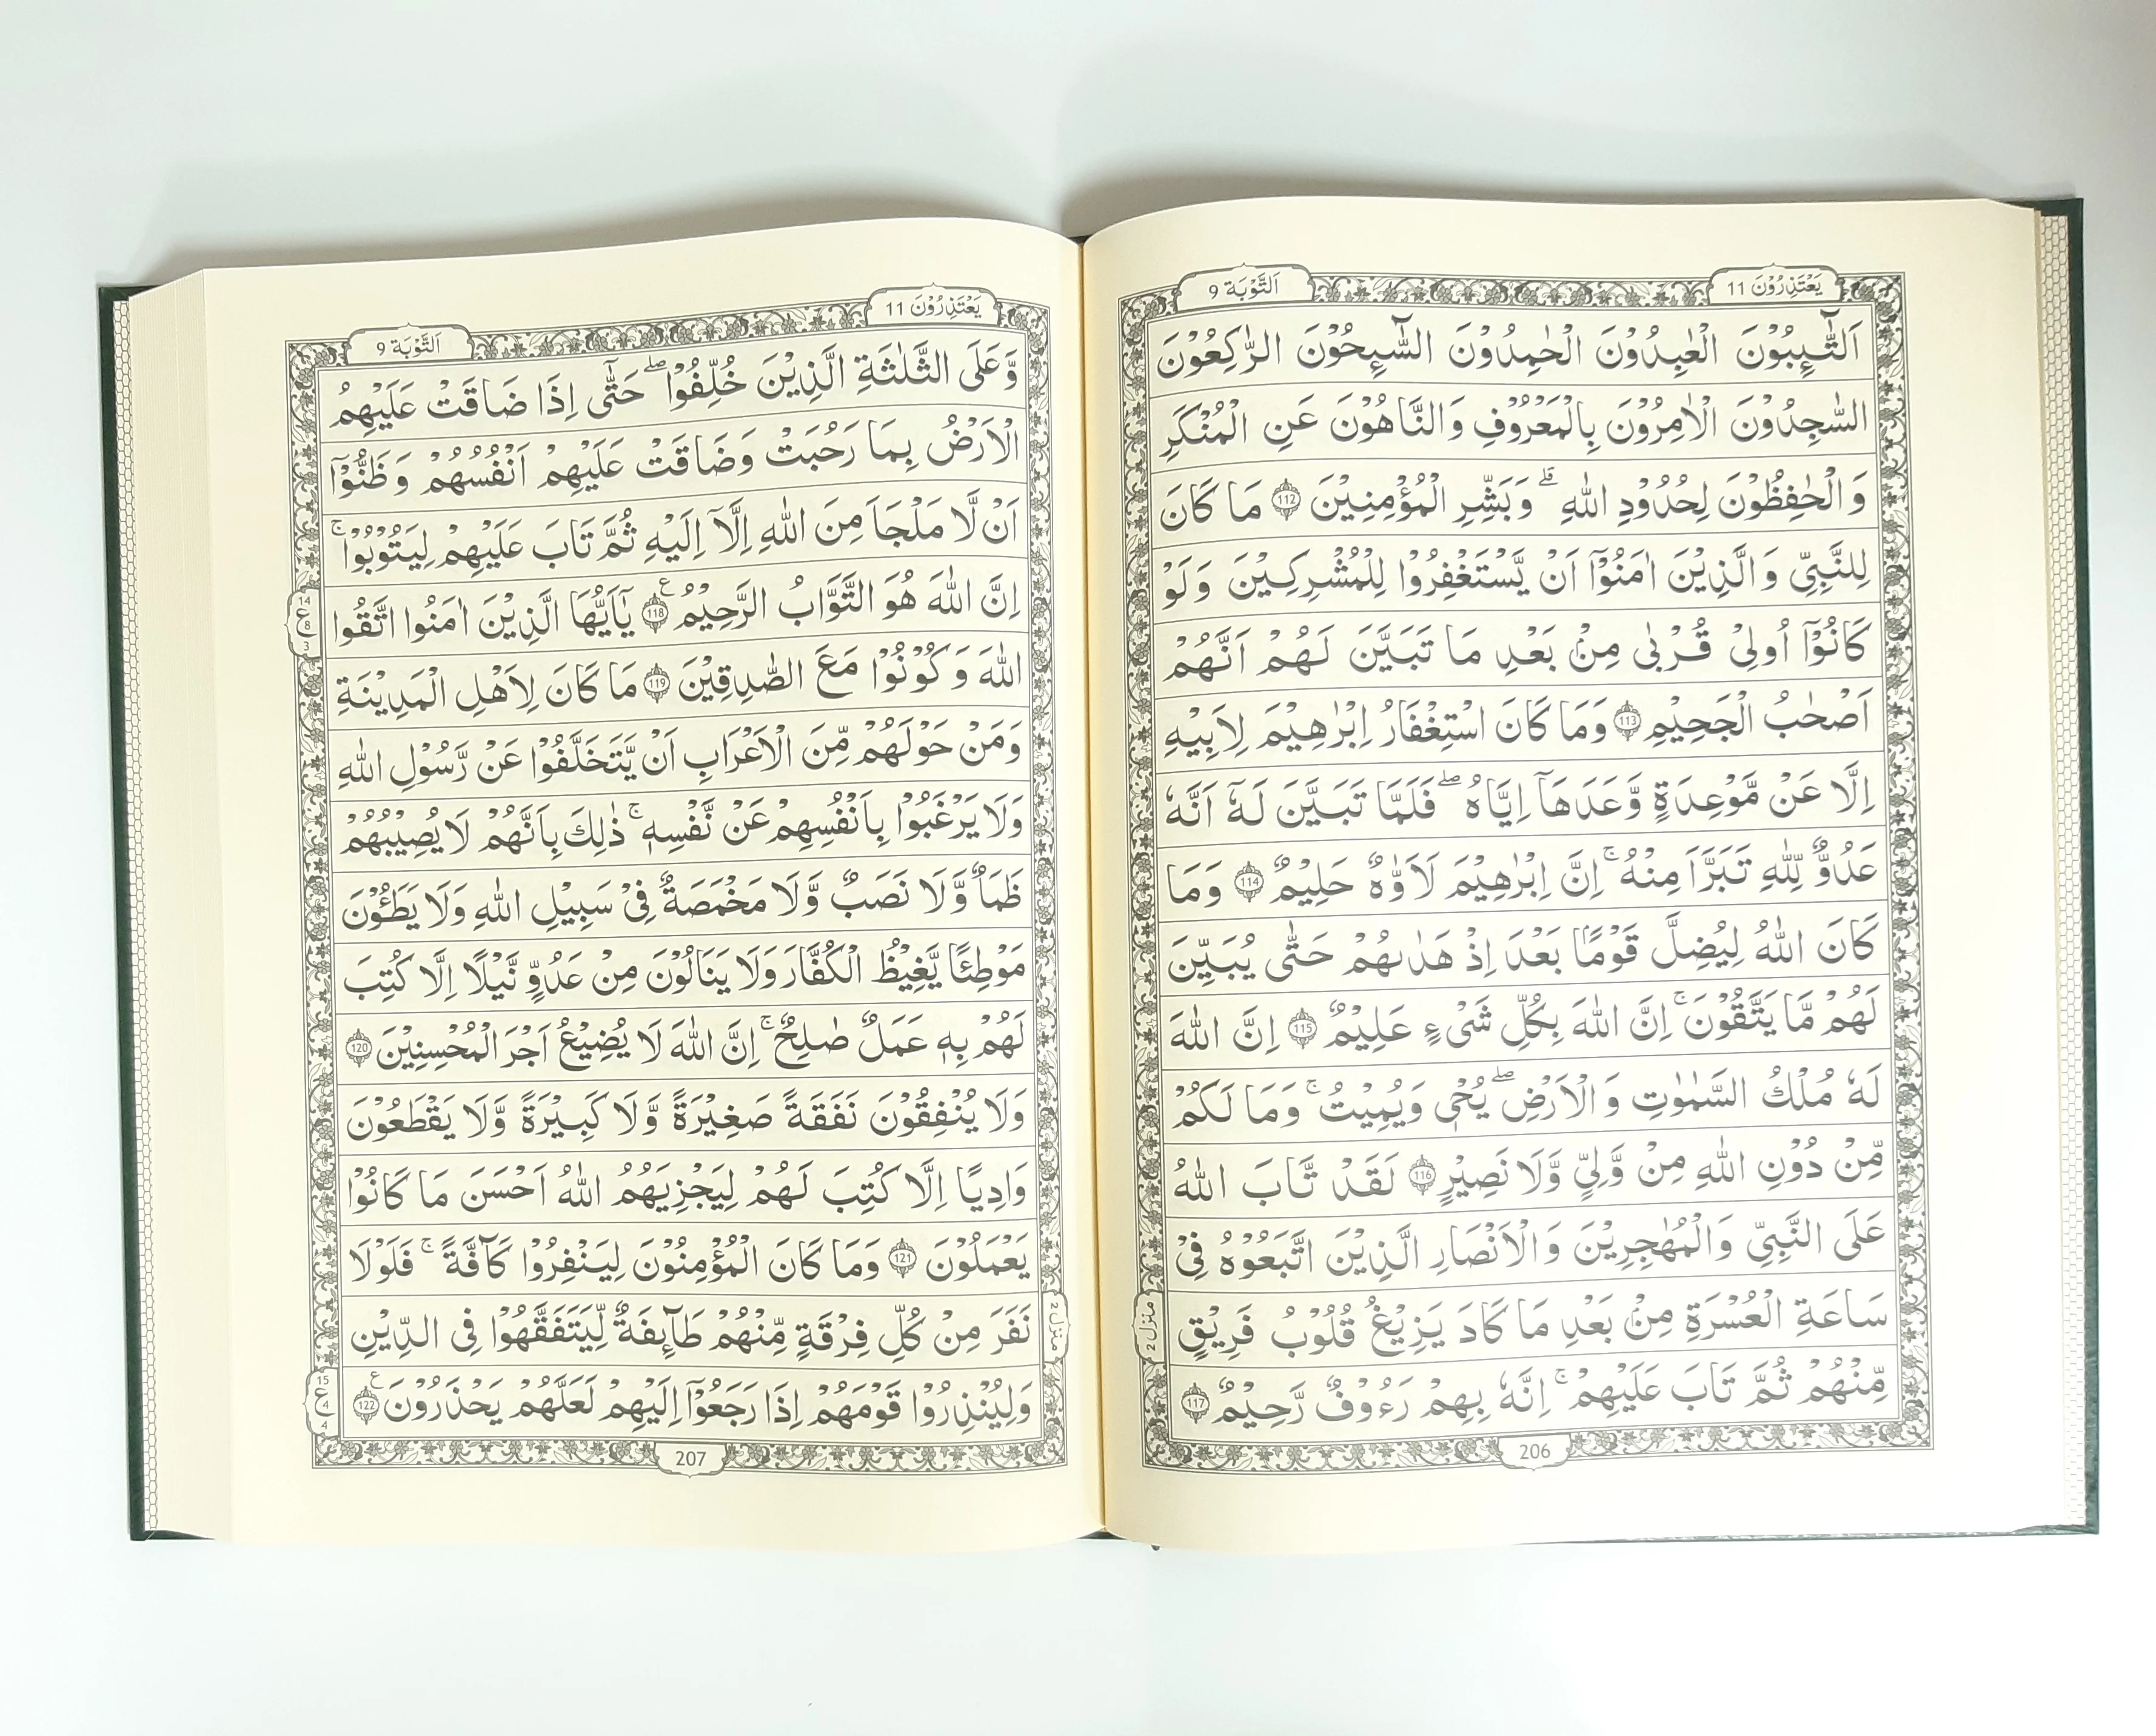 يَعْتَذِرُوْنَ 11
اَلتَّوْبَة 9
اَلتَّآىِٕبُوْنَ الْعٰبِدُوْنَ الْحٰمِدُوْنَ السَّآىِٕحُوْنَ الرّٰكِعُوْنَ
السّٰجِدُوْنَ الْاٰمِرُوْنَ بِالْمَعْرُوْفِ وَالنَّاهُوْنَ عَنِ الْمُنْكَرِ
وَالْحٰفِظُوْنَ لِحُدُوْدِ اللّٰهِ ۗ وَبَشِّرِ الْمُؤْمِنِيْنَ 112 مَا كَانَ
لِلنَّبِيِّ وَالَّذِيْنَ اٰمَنُوْٓا اَنْ يَّسْتَغْفِرُوْا لِلْمُشْرِكِيْنَ وَلَوْ
كَانُوْٓا اُولِيْ قُرْبٰى مِنْۢ بَعْدِ مَا تَبَيَّنَ لَهُمْ اَنَّهُمْ
اَصْحٰبُ الْجَحِيْمِ 113 وَمَا كَانَ اسْتِغْفَارُ اِبْرٰهِيْمَ لِاَبِيْهِ
اِلَّا عَنْ مَّوْعِدَةٍ وَّعَدَهَآ اِيَّاهُ ۖ فَلَمَّا تَبَيَّنَ لَهٗٓ اَنَّهٗ
عَدُوٌّ لِّلّٰهِ تَبَرَّاَ مِنْهُ ۚ اِنَّ اِبْرٰهِيْمَ لَاَوَّاهٌ حَلِيْمٌ 114 وَمَا
كَانَ اللّٰهُ لِيُضِلَّ قَوْمًاۢ بَعْدَ اِذْ هَدٰىهُمْ حَتّٰى يُبَيِّنَ
لَهُمْ مَّا يَتَّقُوْنَ ۚ اِنَّ اللّٰهَ بِكُلِّ شَيْءٍ عَلِيْمٌ 115 اِنَّ اللّٰهَ
لَهٗ مُلْكُ السَّمٰوٰتِ وَالْاَرْضِ ۖ يُحْيٖ وَيُمِيْتُ ۚ وَمَا لَكُمْ
مِّنْ دُوْنِ اللّٰهِ مِنْ وَّلِيٍّ وَّلَا نَصِيْرٍ 116 لَقَدْ تَّابَ اللّٰهُ
عَلَى النَّبِيِّ وَالْمُهٰجِرِيْنَ وَالْاَنْصَارِ الَّذِيْنَ اتَّبَعُوْهُ فِيْ
سَاعَةِ الْعُسْرَةِ مِنْۢ بَعْدِ مَا كَادَ يَزِيْغُ قُلُوْبُ فَرِيْقٍ
مِّنْهُمْ ثُمَّ تَابَ عَلَيْهِمْ ۚ اِنَّهٗ بِهِمْ رَءُوْفٌ رَّحِيْمٌ 117
منزل 2
206
يَعْتَذِرُوْنَ 11
اَلتَّوْبَة 9
وَّعَلَى الثَّلٰثَةِ الَّذِيْنَ خُلِّفُوْا ۖ حَتّٰٓى اِذَا ضَاقَتْ عَلَيْهِمُ
الْاَرْضُ بِمَا رَحُبَتْ وَضَاقَتْ عَلَيْهِمْ اَنْفُسُهُمْ وَظَنُّوْٓا
اَنْ لَّا مَلْجَاَ مِنَ اللّٰهِ اِلَّآ اِلَيْهِ ثُمَّ تَابَ عَلَيْهِمْ لِيَتُوْبُوْا ۚ
اِنَّ اللّٰهَ هُوَ التَّوَّابُ الرَّحِيْمُ 118 ع يٰٓاَيُّهَا الَّذِيْنَ اٰمَنُوا اتَّقُوا
اللّٰهَ وَكُوْنُوْا مَعَ الصّٰدِقِيْنَ 119 مَا كَانَ لِاَهْلِ الْمَدِيْنَةِ
وَمَنْ حَوْلَهُمْ مِّنَ الْاَعْرَابِ اَنْ يَّتَخَلَّفُوْا عَنْ رَّسُوْلِ اللّٰهِ
وَلَا يَرْغَبُوْا بِاَنْفُسِهِمْ عَنْ نَّفْسِهٖ ۚ ذٰلِكَ بِاَنَّهُمْ لَا يُصِيْبُهُمْ
ظَمَاٌ وَّلَا نَصَبٌ وَّلَا مَخْمَصَةٌ فِيْ سَبِيْلِ اللّٰهِ وَلَا يَطَـُٔوْنَ
مَوْطِئًا يَّغِيْظُ الْكُفَّارَ وَلَا يَنَالُوْنَ مِنْ عَدُوٍّ نَّيْلًا اِلَّا كُتِبَ
لَهُمْ بِهٖ عَمَلٌ صٰلِحٌ ۚ اِنَّ اللّٰهَ لَا يُضِيْعُ اَجْرَ الْمُحْسِنِيْنَ 120
وَلَا يُنْفِقُوْنَ نَفَقَةً صَغِيْرَةً وَّلَا كَبِيْرَةً وَّلَا يَقْطَعُوْنَ
وَادِيًا اِلَّا كُتِبَ لَهُمْ لِيَجْزِيَهُمُ اللّٰهُ اَحْسَنَ مَا كَانُوْا
يَعْمَلُوْنَ 121 وَمَا كَانَ الْمُؤْمِنُوْنَ لِيَنْفِرُوْا كَآفَّةً ۚ فَلَوْلَا
نَفَرَ مِنْ كُلِّ فِرْقَةٍ مِّنْهُمْ طَآىِٕفَةٌ لِّيَتَفَقَّهُوْا فِى الدِّيْنِ
وَلِيُنْذِرُوْا قَوْمَهُمْ اِذَا رَجَعُوْٓا اِلَيْهِمْ لَعَلَّهُمْ يَحْذَرُوْنَ 122 ع
14
ع 8
3
منزل 2
15
ع 4
4
207